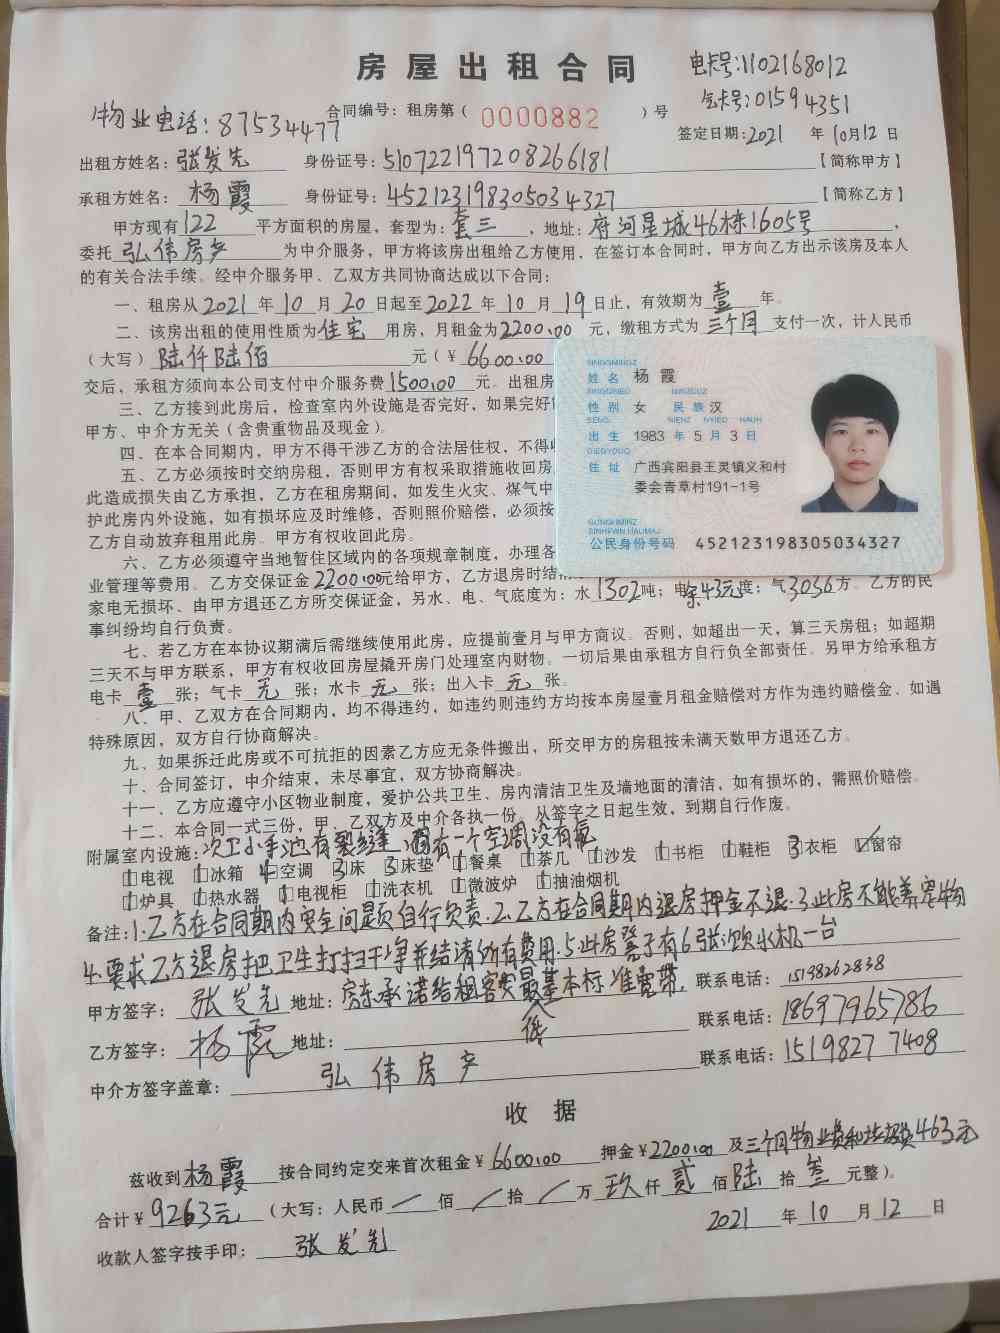 房屋出租合同
电卡号:1102168012
气卡号:01594351
物业电话:87534477
合同编号：租房第（0000882）号
签定日期:2021年10月12日
出租方姓名：张发先 身份证号：510722197208266181【简称甲方】
承租方姓名：杨霞 身份证号：452123198305034327【简称乙方】
甲方现有122平方面积的房屋，套型为：套三，地址：府河星城46栋1605号，
委托弘伟房产为中介服务，甲方将该房出租给乙方使用，在签订本合同时，甲方向乙方出示该房及本人
的有关合法手续。经中介服务甲、乙双方共同协商达成以下合同：
一、租房从2021年10月20日起至2022年10月19日止，有效期为壹年。
二、该房出租的使用性质为住宅用房，月租金为2200.00元，缴租方式为三个月支付一次，计人民币
（大写）陆仟陆佰元（￥6600.00
交后，承租方须向本公司支付中介服务费1500.00元。出租房
三、乙方接到此房后，检查室内外设施是否完好，如果完好
甲方、中介方无关（含贵重物品及现金）。
四、在本合同期内，甲方不得干涉乙方的合法居住权，不得
五、乙方必须按时交纳房租，否则甲方有权采取措施收回房
此造成损失由乙方承担，乙方在租房期间，如发生火灾、煤气中
护此房内外设施，如有损坏应及时维修，否则照价赔偿，必须按
乙方自动放弃租用此房。甲方有权收回此房。
六、乙方必须遵守当地暂住区域内的各项规章制度，办理各
业管理等费用。乙方交保证金2200.00元给甲方，乙方退房时结清
家电无损坏、由甲方退还乙方所交保证金，另水、电、气底度为：水1302吨；电余43元度；气3036方。乙方的民
事纠纷均自行负责。
七、若乙方在本协议期满后需继续使用此房，应提前壹月与甲方商议。否则，如超出一天，算三天房租；如超期
三天不与甲方联系，甲方有权收回房屋撬开房门处理室内财物。一切后果由承租方自行负全部责任。另甲方给承租方
电卡壹张；气卡无张；水卡无张；出入卡无张。
八、甲、乙双方在合同期内，均不得违约，如违约则违约方均按本房屋壹月租金赔偿对方作为违约赔偿金、如遇
特殊原因，双方自行协商解决。
九、如果拆迁此房或不可抗拒的因素乙方应无条件搬出，所交甲方的房租按未满天数甲方退还乙方。
十、合同签订，中介结束，未尽事宜，双方协商解决。
十一、乙方应遵守小区物业制度，爱护公共卫生、房内清洁卫生及墙地面的清洁，如有损坏的，需照价赔偿。
十二、本合同一式三份，甲、乙双方及中介各执一份。从签字之日起生效，到期自行作废。
附属室内设施：次卫小手池有裂缝，因有一个空调没有氟
1电视 1冰箱 4空调 3床 3床垫 1餐桌 1茶几 1沙发 1书柜 1鞋柜 3衣柜 窗帘
1炉具 1热水器 1电视柜 1洗衣机 1微波炉 1抽油烟机
备注：1.乙方在合同期内安全问题自行负责.2.乙方在合同期内退房押金不退.3.此房不能养宠物
4.要求乙方退房把卫生打扫干净并结清所有费用.5.此房凳子有6张,饮水机一台
甲方签字：张发先 地址：房东承诺给租客安最基本标准宽带. 联系电话：15198262838
低
乙方签字：杨霞 地址： 联系电话：18697965786
中介方签字盖章：弘伟房产 联系电话：15198277408
收据
兹收到杨霞按合同约定交来首次租金￥6600.00 押金￥2200.00及三个月物业费和垃圾费463元
合计￥9263元（大写：人民币／佰／拾／万玖仟贰佰陆拾叁元整）。
2021年10月12日
收款人签字按手印：张发先
SINGQMINGZ
姓名 杨霞
SINGQBIED MINZCUZ
性别 女 民族 汉
SENG NIENZ NYIED HAUH
出生 1983年5月3日
DIEGYOUQ
住址 广西宾阳县王灵镇义和村
委会青草村191-1号
GUNGHMINZ
SINHFWN HAUMAJ
公民身份号码 452123198305034327